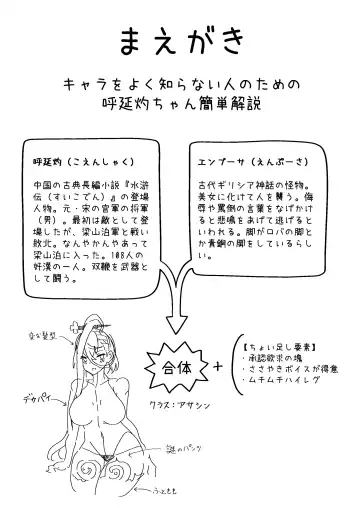 まえがき
キャラをよく知らない人のための
呼延灼ちゃん簡単解説
呼延灼（こえんしゃく）
中国の古典長編小説『水滸
伝（すいこでん）』の登場
人物。元・宋の官軍の将軍
（男）。最初は敵として登
場したが、梁山泊軍と戦い
敗北。なんやかんやあって
梁山泊に入った。108人の
好漢の一人。双鞭を武器と
して闘う。
エンプーサ（えんぷーさ）
古代ギリシア神話の怪物。
美女に化けて人を襲う。侮
辱や罵倒の言葉をなげかけ
ると悲鳴をあげて逃げると
いわれる。脚がロバの脚と
か青銅の脚をしているらし
い。
合体
+
【ちょい足し要素】
・承認欲求の塊
・ささやきボイスが得意
・ムチムチハイレグ
クラス：アサシン
変な髪型
デカパイ
謎のパンツ
ふともも